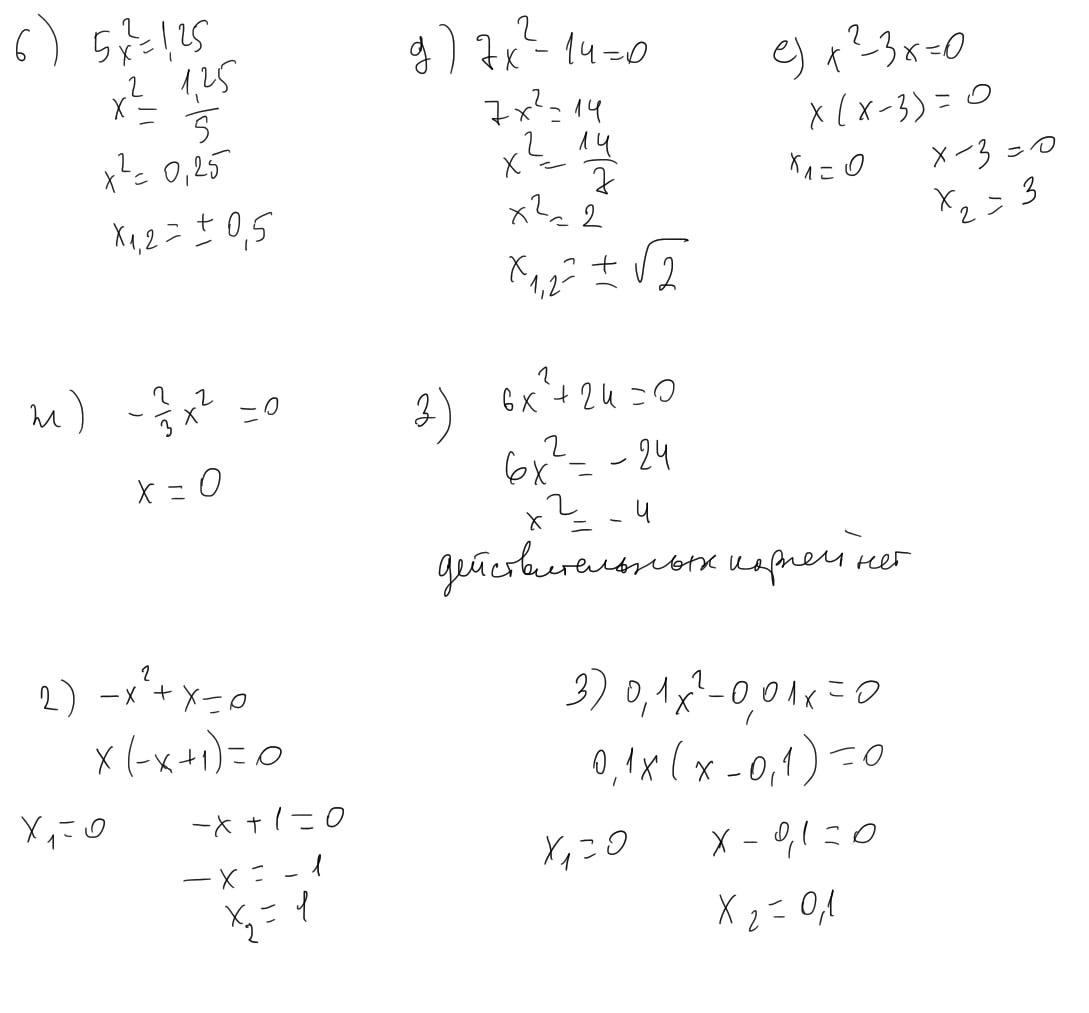 б) 5x²=1,25
x² = 1,25/5
x² = 0,25
x₁,₂ = ± 0,5
g) 7x² - 14 = 0
7x² = 14
x² = 14/7
x² = 2
x₁,₂ = ± √2
e) x² - 3x = 0
x(x-3) = 0
x₁ = 0 x-3 = 0
x₂ = 3
ж) -2/3 x² = 0
x = 0
з) 6x² + 24 = 0
6x² = -24
x² = -4
действительных корней нет
2) -x² + x = 0
x(-x+1) = 0
x₁ = 0 -x+1 = 0
-x = -1
x₂ = 1
3) 0,1x² - 0,01x = 0
0,1x(x-0,1) = 0
x₁ = 0 x - 0,1 = 0
x₂ = 0,1